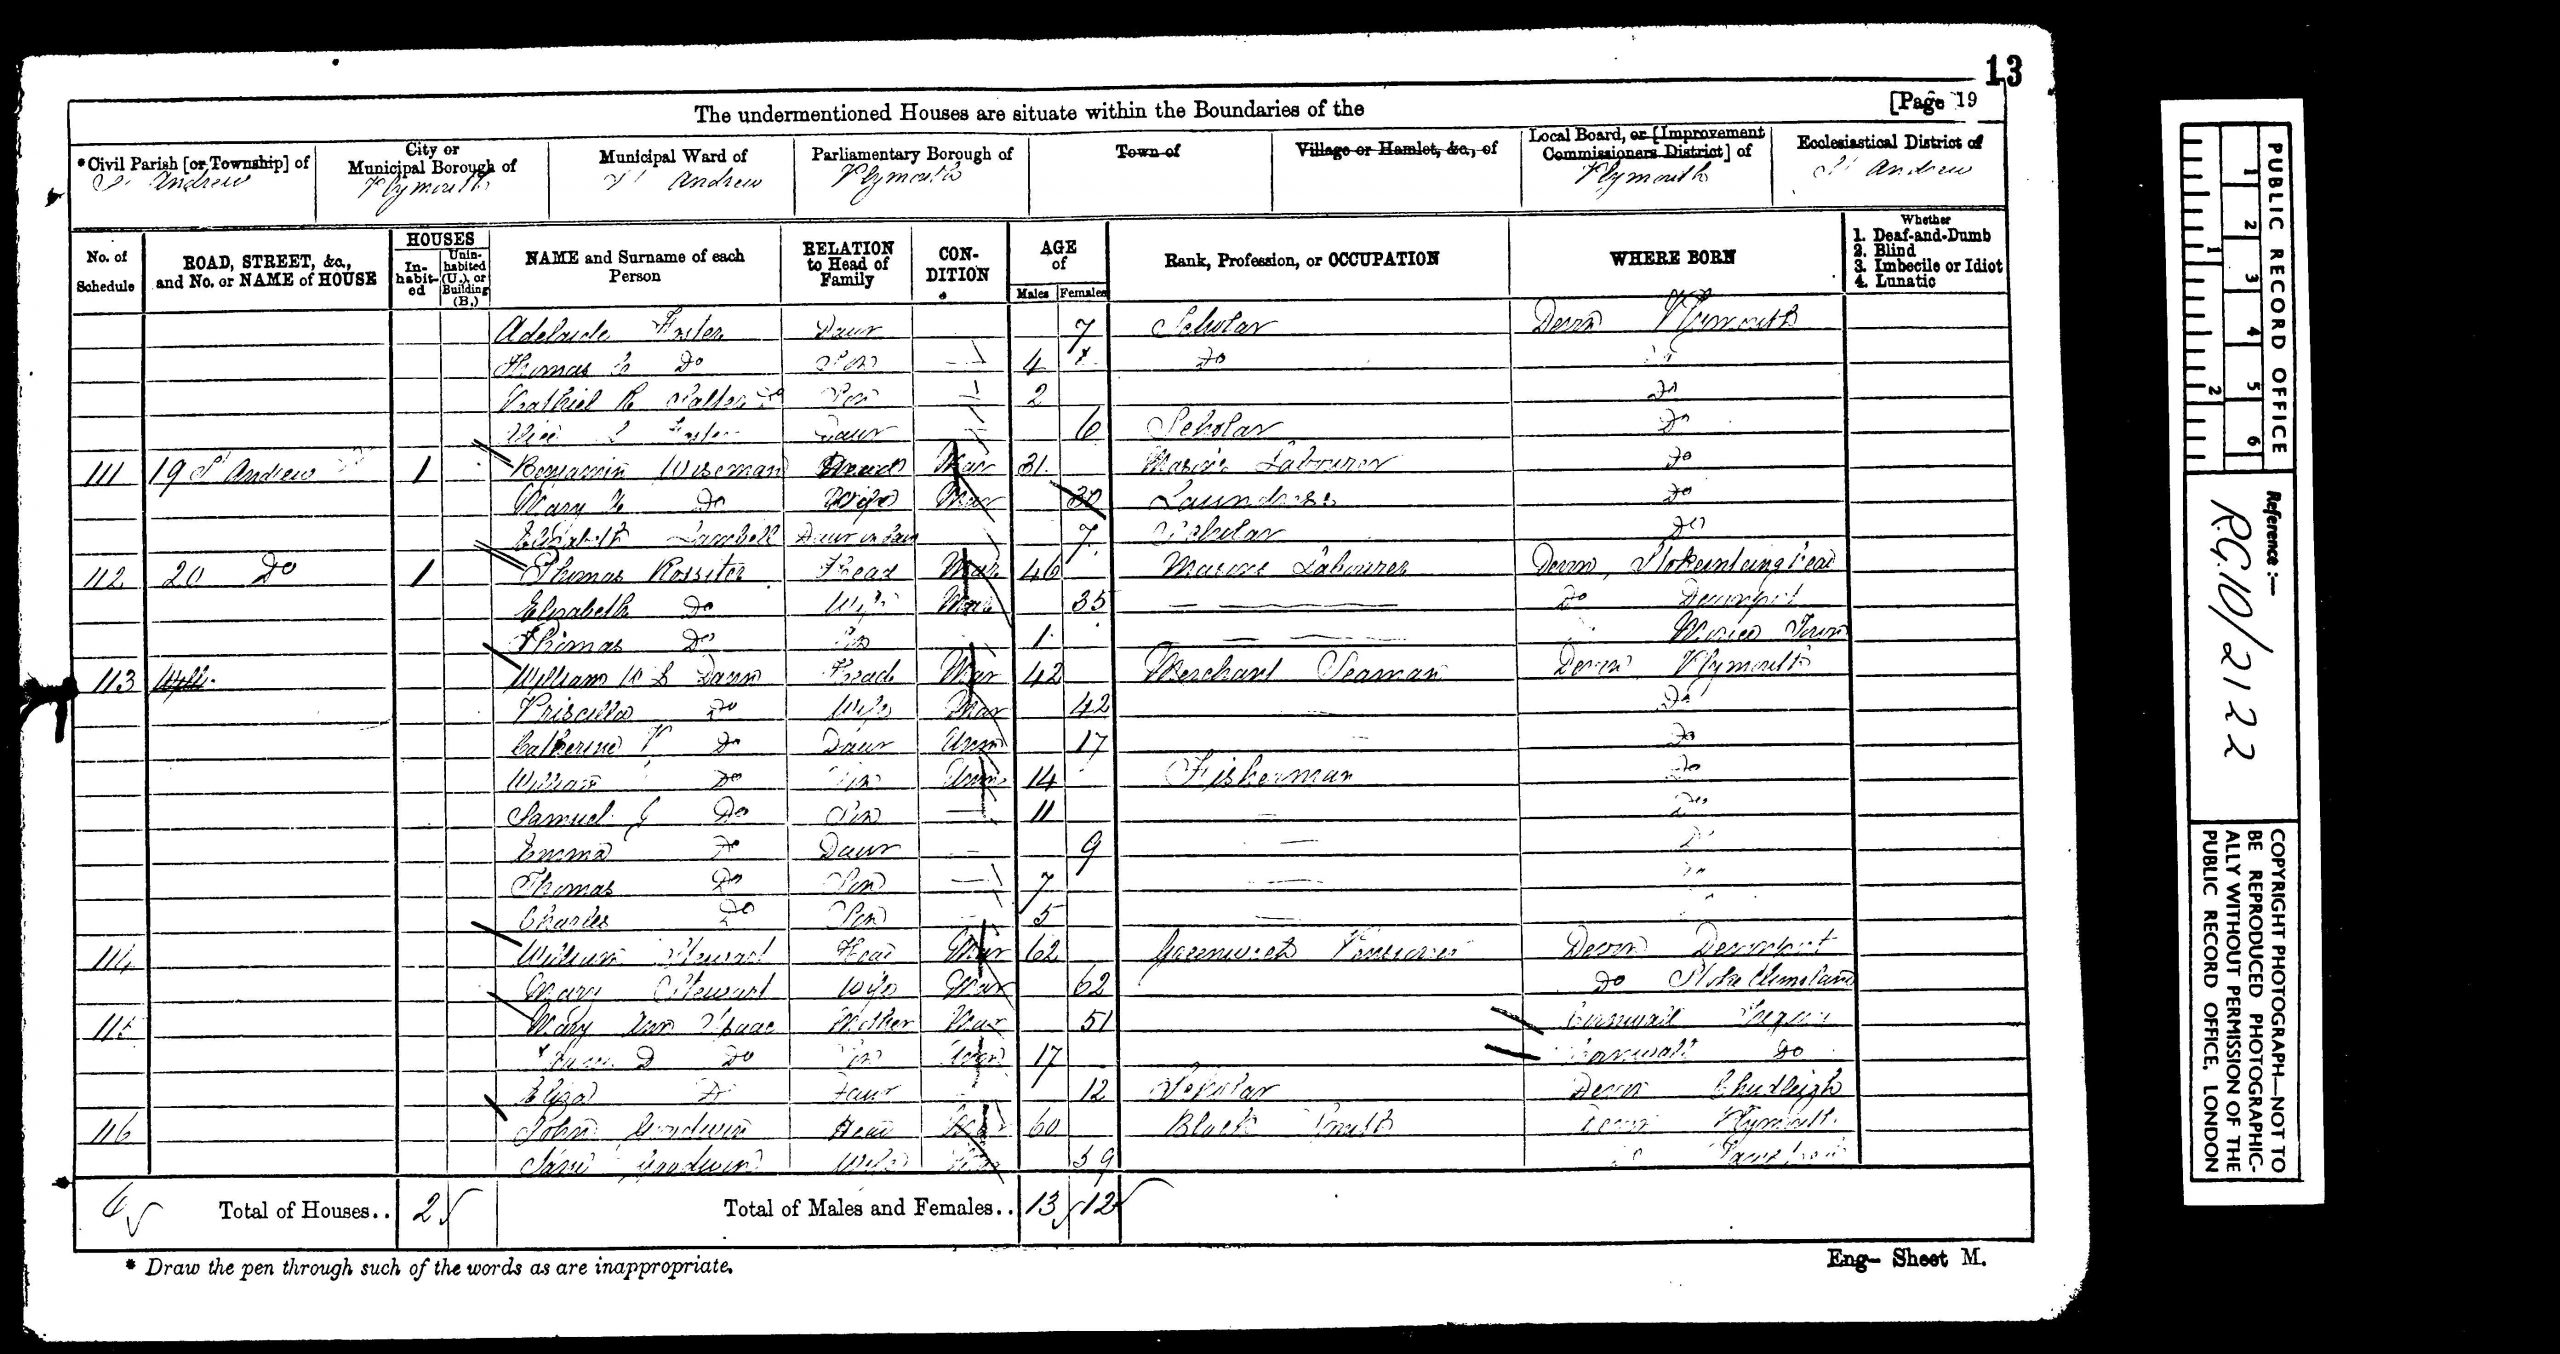 13
The undermentioned Houses are situate within the Boundaries of the [Page 19
*Civil Parish [or Township] of City or Municipal Borough of Municipal Ward of Parliamentary Borough of Town of Village or Hamlet, &c., of Local Board, or [Improvement Commissioners District] of Ecclesiastical District of
St Andrew Plymouth St Andrew Plymouth Plymouth St Andrew
No. of Schedule ROAD, STREET, &c., and No. or NAME of HOUSE HOUSES Inhabited Uninhabited (U.), or Building (B.) NAME and Surname of each Person RELATION to Head of Family CONDITION AGE of Males Females Rank, Profession, or OCCUPATION WHERE BORN Whether 1. Deaf-and-Dumb 2. Blind 3. Imbecile or Idiot 4. Lunatic
Adelaide Daur 7 Scholar Devon Plymouth
Thomas Do Son 4 Do Do
Son 2 Do
Daur 6 Scholar Do
111 19 St Andrew 1 Benjamin Wiseman Head Mar 31 Masons Labourer Do
Mary Do Wife Mar 30 Laundress Do
Elizabeth Daur in Law 7 Scholar Do
112 20 Do 1 Thomas Rossiter Head Mar 46 Masons Labourer Devon, Stokeinteignhead
Elizabeth Do Wife Mar 35 Do Devonport
Thomas Do Son 1 Morice Town
113 William Head Mar 42 Merchant Seaman Devon Plymouth
Priscilla Do Wife Mar 42 Do
Catherine P Do Daur Unm 17 Do
William Do Son Unm 14 Fisherman Do
Samuel G Do Son 11 Do
Emma Do Daur 9 Do
Thomas Do Son 7
Charles Do Son 5
114 William Stewart Head Mar 62 Greenwich Pensioner Devon Devonport
Mary Stewart Wife Mar 62 Do Stoke Climsland
115 Mary Ann Isaac Mother Mar 51 Cornwall
D Do Son Unm 17 Cornwall Do
Eliza Do Daur 12 Scholar Devon Chudleigh
116 John Goodwin Head Mar 60 Black Smith Devon Plymouth
Jane Goodwin Wife 59
Total of Houses.. 2 Total of Males and Females.. 13 12
* Draw the pen through such of the words as are inappropriate.
Eng- Sheet M.
PUBLIC RECORD OFFICE
1 2 3 4 5 6
1 2
Reference:—
R.G. 10/2122
COPYRIGHT PHOTOGRAPH—NOT TO
BE REPRODUCED PHOTOGRAPHIC-
ALLY WITHOUT PERMISSION OF THE
PUBLIC RECORD OFFICE, LONDON